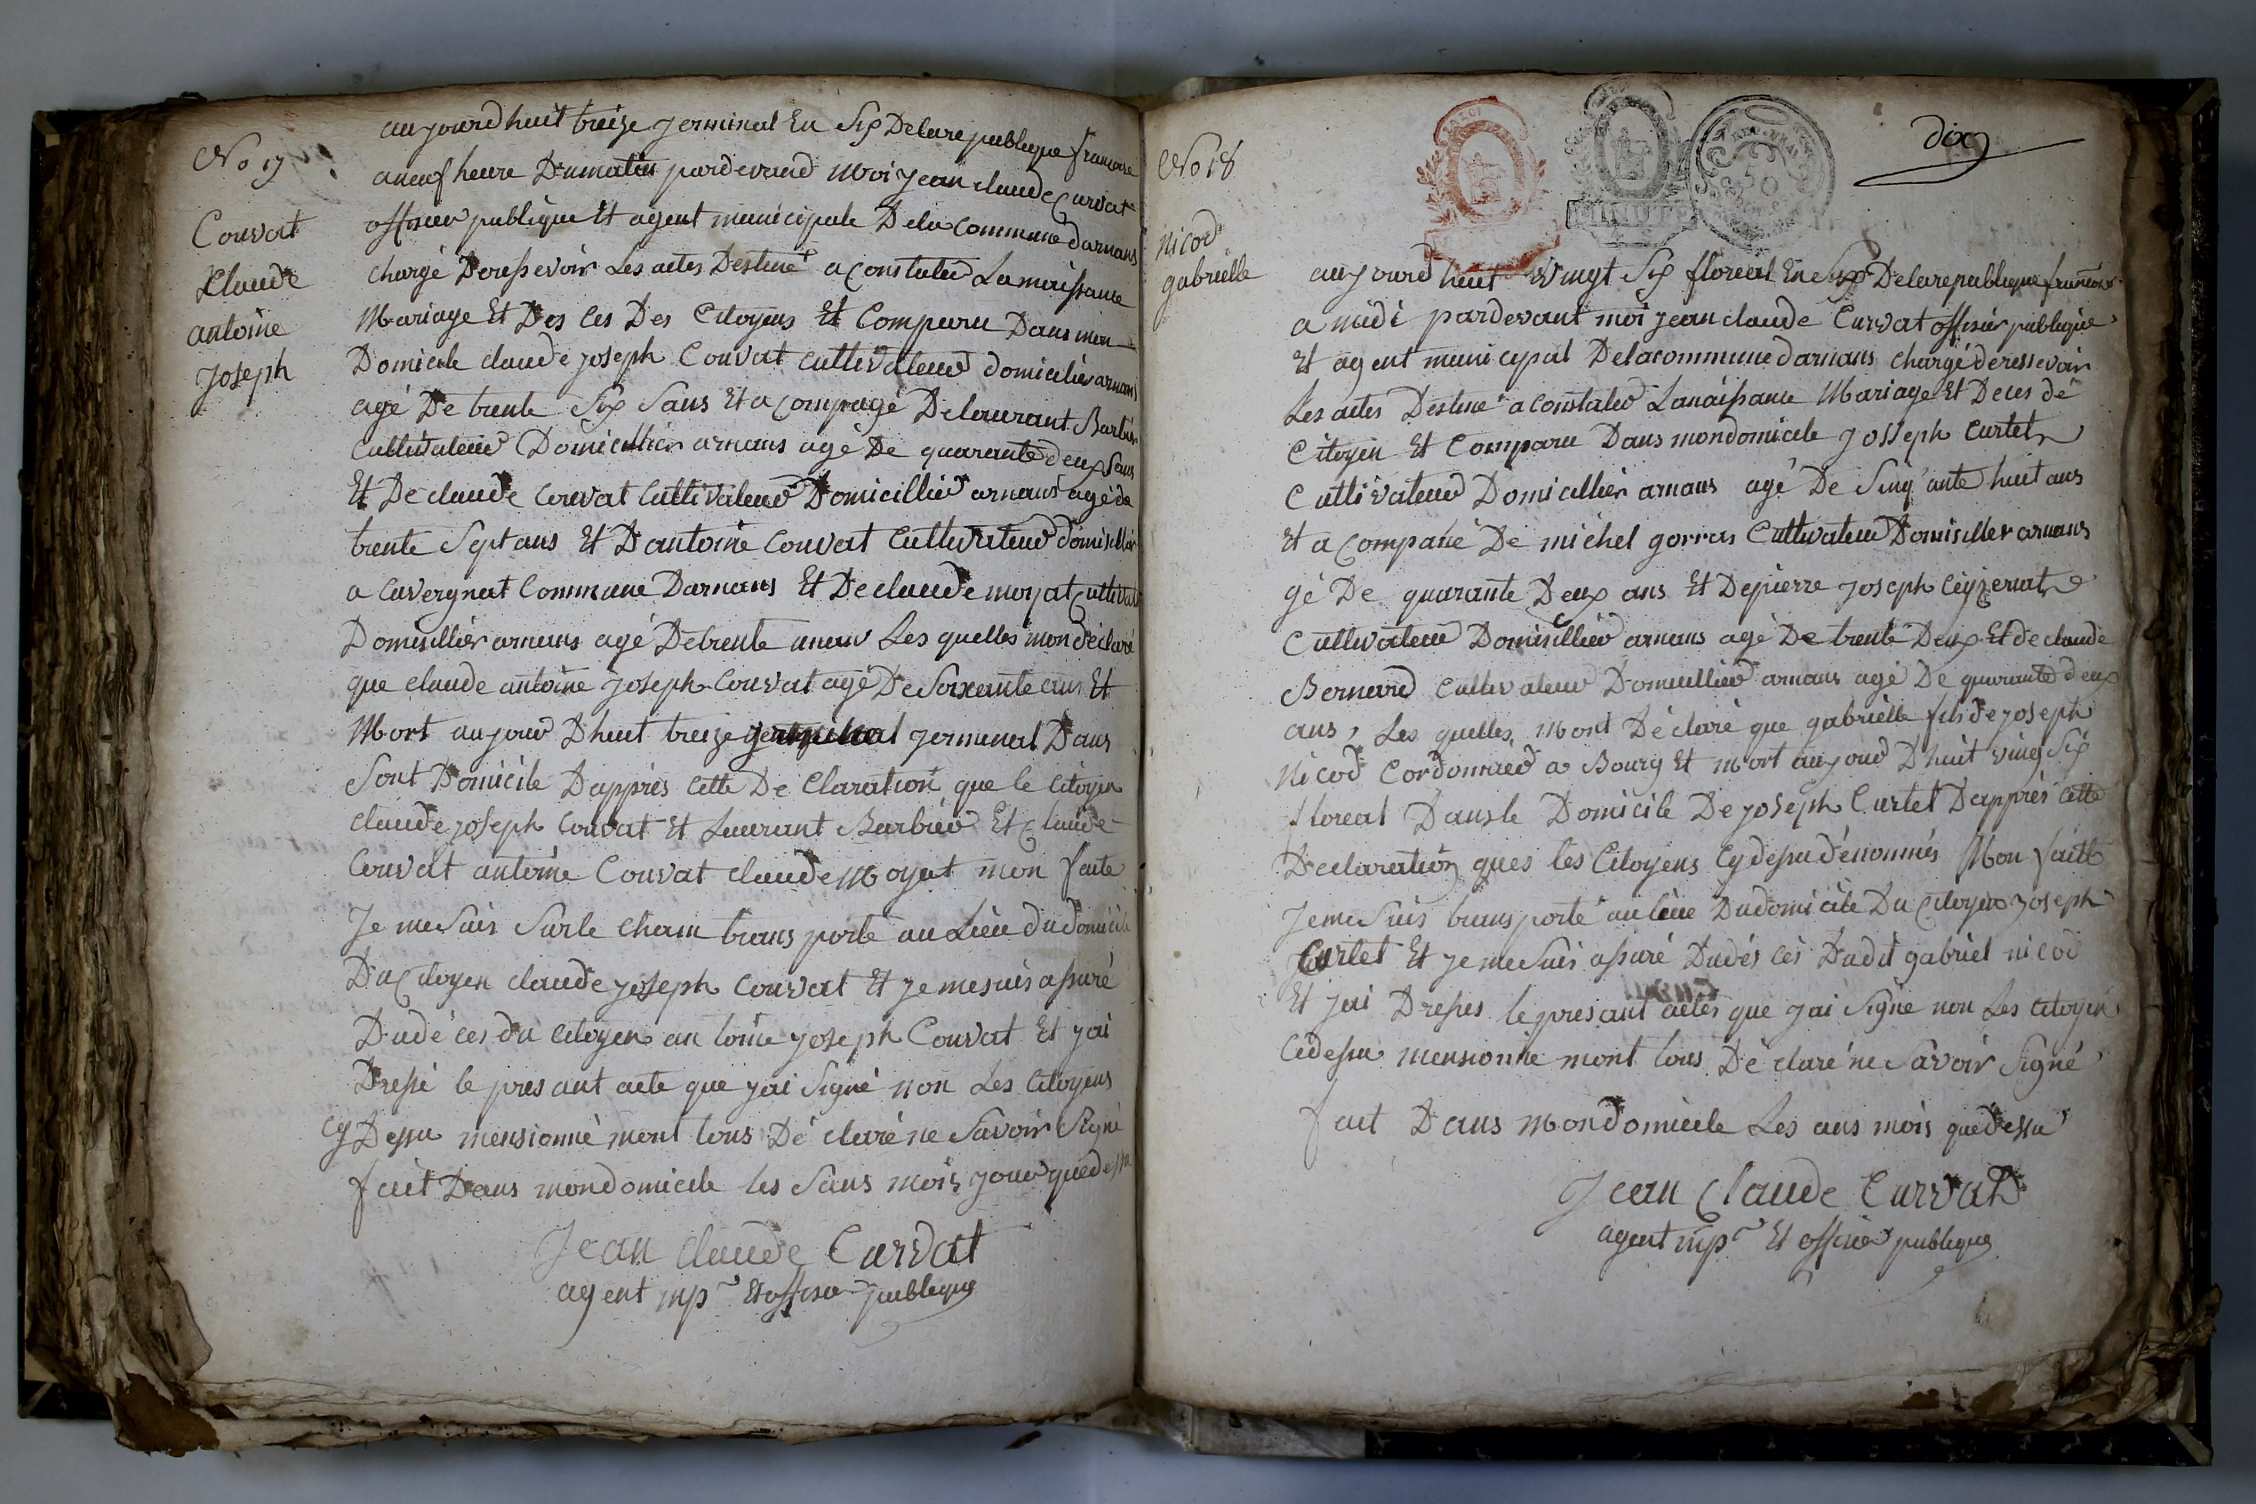 No 17
Couvat
Claude
antoine
Joseph
aujourdhuit treize jerminal En Six Delarepublique francoise
aneuf heure Dumatin pardevand Moi jean claude Curvat
offisier publique Et agent municipale Dela commune darnans
chargé Doressevoir Les actes Destiné a constater La naissance
Mariage Et Des ces Des Citoyens Et Comparu Dans mon
Domicile claude joseph Couvat cultivateur domicilié arnans
agé De trente Six Sans Et a compagé Delaurant Barbier
Cultivateur Domicillier arnans agé De quarante deux Sans
Et De claude Couvat Cultivateur Domicillier arnans agé de
trente Sept ans Et Dantoine Couvat Cultivateur domisillier
a Cuvergnat Commune Darnans Et De claude moyat Cultivat
Domisillier arnans agé Detrente Les quelles mon déclaré
que claude antoine joseph Couvat agé De Soixante ans Et
Mort aujour Dhuit treize jerminal Dans
Sont Domicile Dapprès Cette De Claration que le Citoyen
claude joseph Couvat Et Laurant Barbier Et Claude
Couvat antoine Couvat claude Moyat mon faite
Je me Suis Surle Cham trans porté au Lieu du domicile
Du Citoyen claude joseph Couvat Et je me suis assuré
Dudé ces du Citoyen an toine joseph Couvat Et jai
Dressé le pres ant acte que jai Signé non Les Citoyens
Cy Dessu mensionné mont tous Dé claré ne Savoir Signé
fait Dans mondomicile les Sans mois jour quedessu
Jean Claude Curvat
agent mp Et offisier publique
No 18
dix
50
Nicod
gabrielle
aujourd huit vingt Six floreal En Six Delarepublique francoise
a midi pardevant moi jean claude Curvat offisier publique
Et agent municipal Delacommune darnans chargé deressevoir
Les actes Destiné a constater Lanaissance Mariage Et Deces dé
Citoyen Et Comparu Dans mondomicile Josseph Curtet
Cultivateur Domicillier arnans agé De Sinq'ante huit ans
Et a compané De michel gorras Cultivateur Domisiller arnans
gé De quarante Deux ans Et Depierre joseph Ceyzeriat
Cultivateur Domisillier arnans agé De trente Deux Et de claude
Bernard Cultivateur Domicillier arnans agé De quarante deux
ans, Les quelles Mont Déclaré que gabrielle fils de joseph
Nicod Cordonnier a Bourg Et Mort aujour Dhuit ving Six
floreal Dansle Domicile De joseph Curtet Dapprès cette
Declaration ques les Citoyens Cydessu dénommés Mon faitte
Jeme Suis transporté au lieu Dudomicile Du Citoyen joseph
Curtet Et je me Suis assuré Dudés ces Dudit gabriel nicod
Et jai Dresses le presant actes que jai Signe non Les Citoyens
Cidessu mensionne mont tous Dé claré ne Savoir Signé
fait Dans Mondomicile Les ans mois que dessu
Jean Claude Curvat
agent mp Et offisier publique